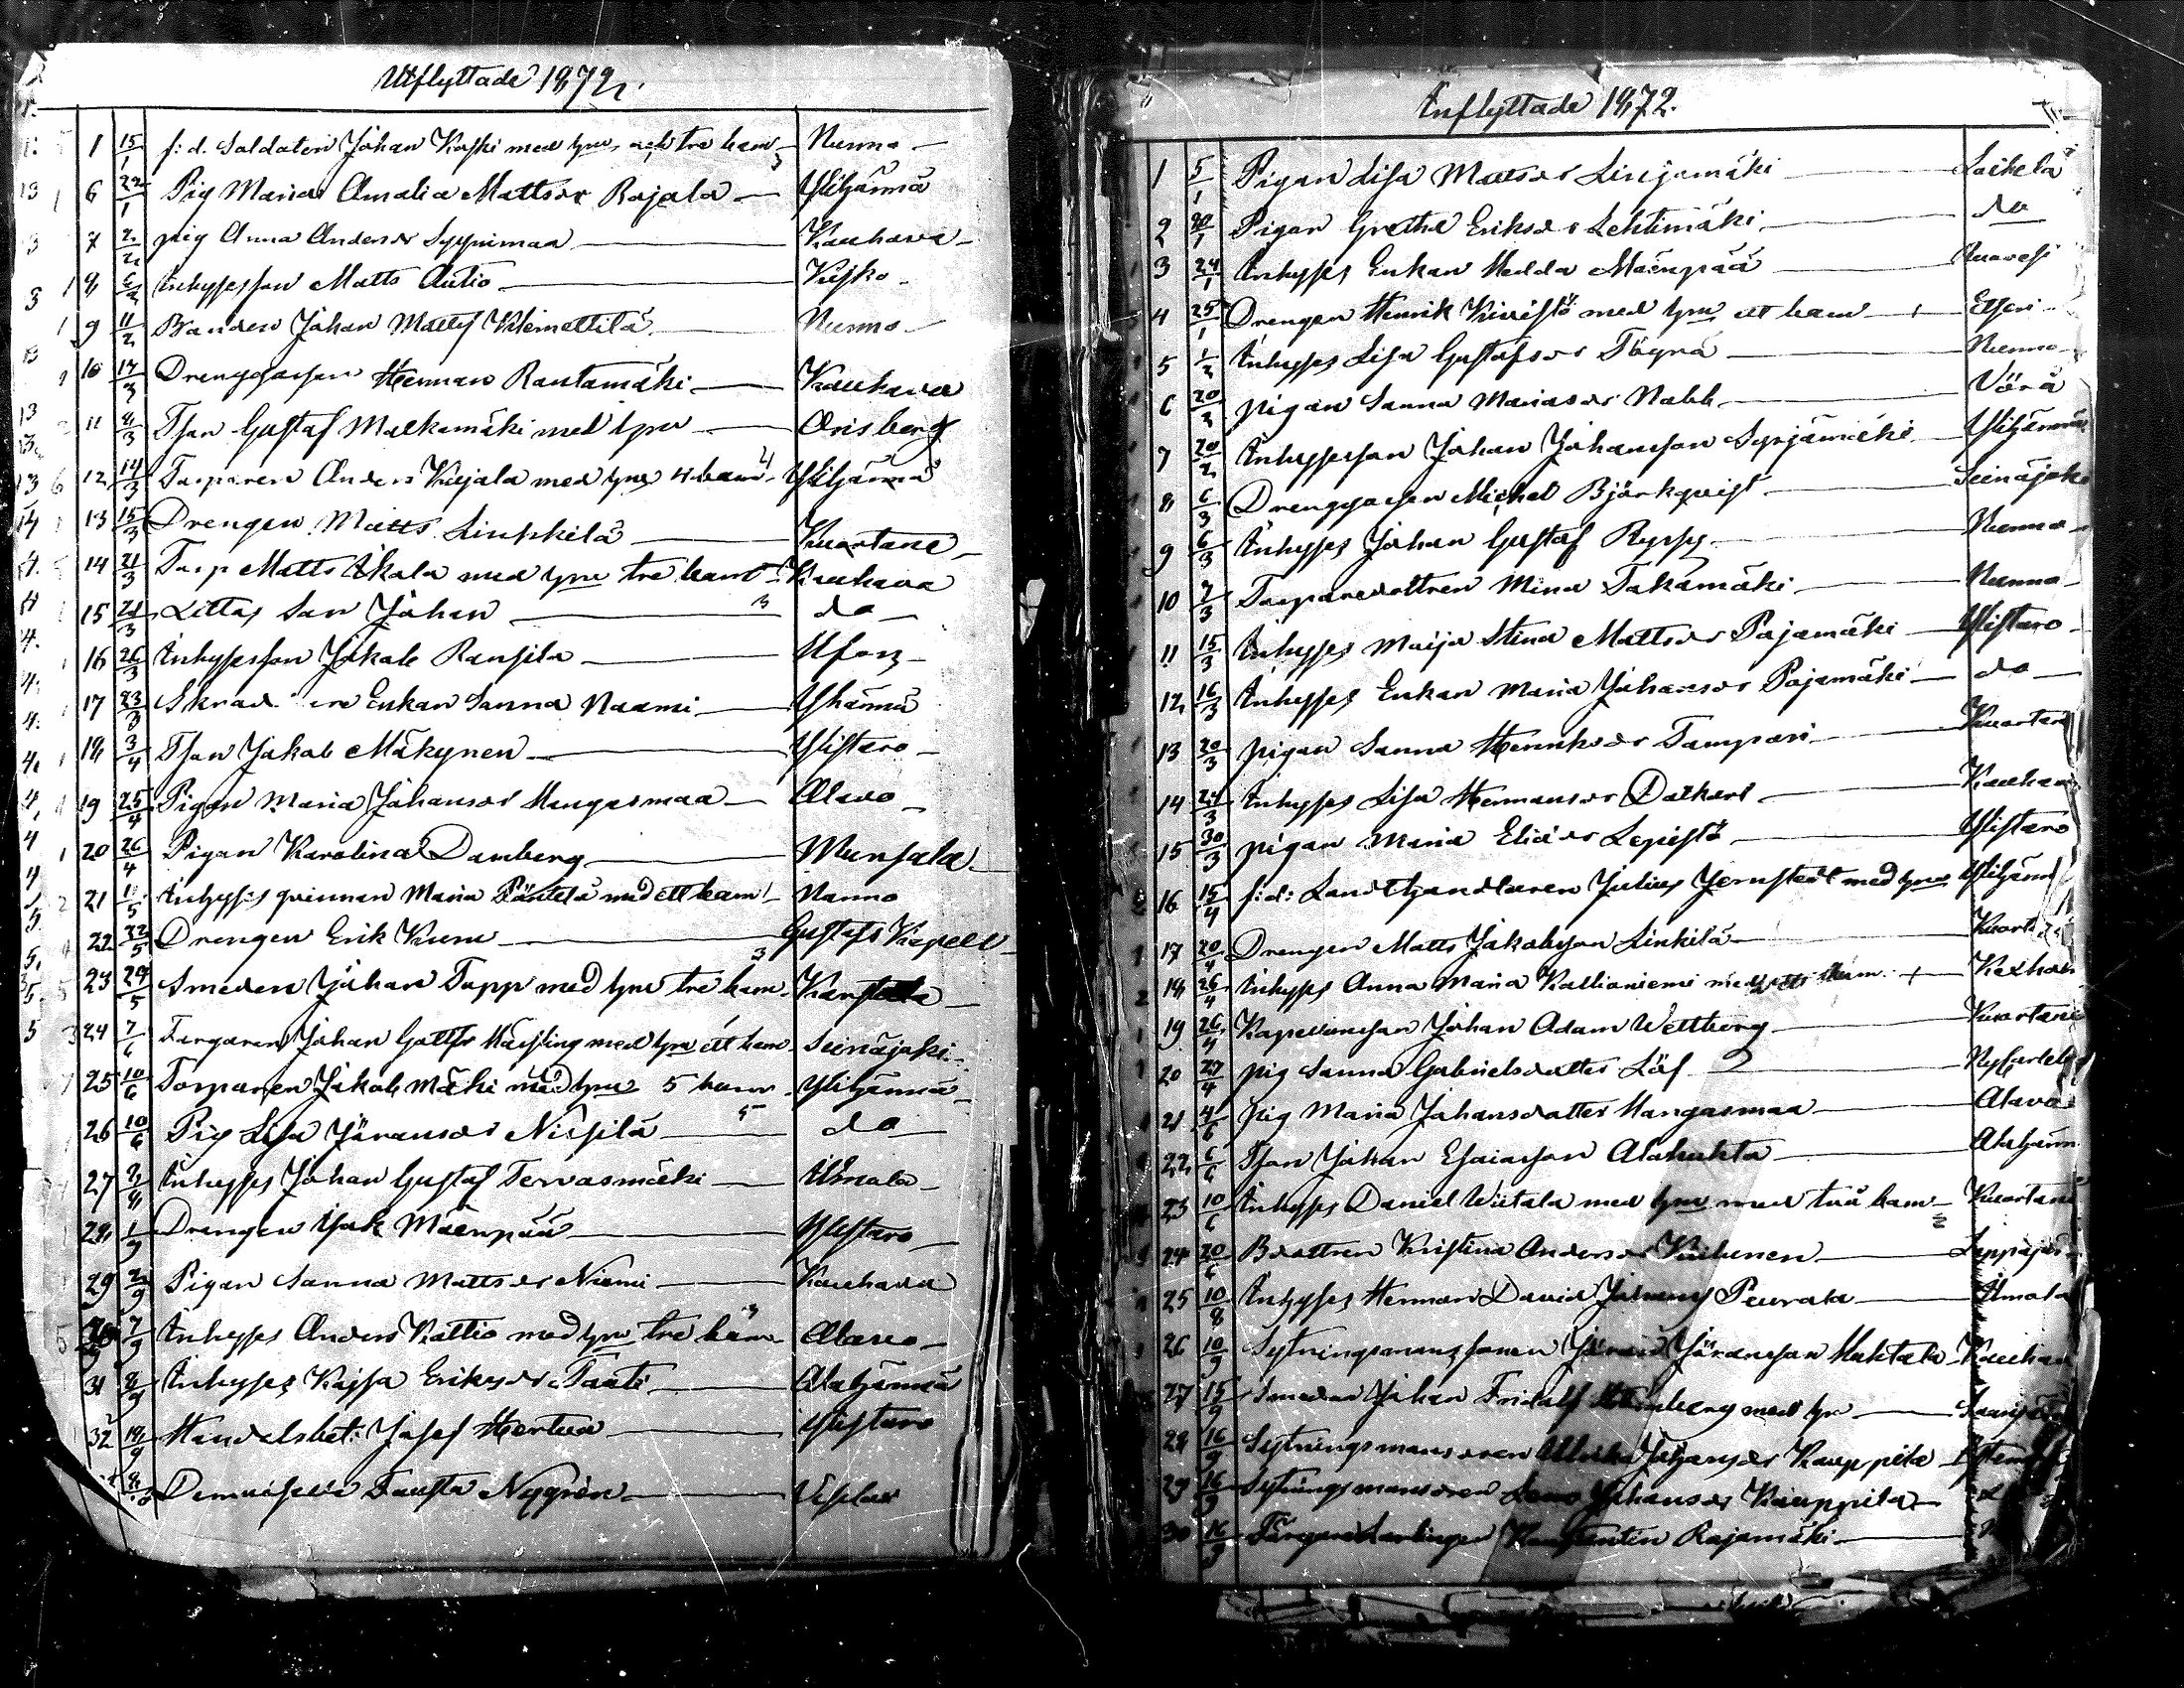 Utflyttade 1872.
1 15/1 f: d. Soldaten Johan Koski med hru och tre barn 3 Nurmo
6 22/1 Pig Maria Amalia Mattsdr Rajala Ylihärmä
7 2/2 pig Anna Andersdr Syynimaa Kauhava
8 6/2 Inhysesson Matts Autio Kisko
9 11/2 Bonden Johan Matts Klemettilä Nurmo
10 14/3 Drenggossen Herman Rantamäki Kauhava
11 8/3 Tson Gustaf Malkamäki med hru Orisberg
12 14/3 Torparen Anders Kujala med hru 4 barn 4 Ylihärmä
13 15/3 Drengen Matts Linkkilä Kuortane
14 21/3 Torp Matts Ikola med hru tre barn Kauhava
15 21/3 Littos Son Johan 3 do
16 26/3 Inhysesson Jakob Ransila
17 23/3 Enkan Sanna Naami Yhärmä
18 3/4 Tson Jakob Mäkynen Ylistaro
19 25/4 Pigan Maria Johansdr Hangasmaa Alavo
20 26/4 Pigan Karolina Damberg Munsala
21 5 Inhyses qvinnan Maria Päntelä med ett barn 1 Nurmo
22 22/5 Drengen Erik Kuru Gustafs Kapell
23 29/5 Smeden Johan Topp med hru tre barn 3 Karstula
24 7/6 Fargaren Johan med hru ett barn Seinäjoki
25 10/6 Torparen Jakob Mäki med hru 5 barn 5 Ylihärmä
26 10/6 Pig Lisa Jöransdr Nissilä do
27 2/8 Inhyses Johan Gustaf Tervasmäki Ilmola
28 1/9 Drengen Isak Mäenpää Ylistaro
29 2/9 Pigan Sanna Mattsdr Niemi Kauhava
30 7/9 Inhyses Anders Kattio med hru tre barn 3 Alavo
31 8/9 Inhyses Kajsa Eriksdr Taati Alahärmä
32 18/9 Handelsbet: Josef Hertua Ylistaro
Demoiselle Fausta Nygrén
Inflyttade 1872.
1 5/1 Pigan Lisa Mattsdr Linjamäki Laihela
2 20/1 Pigan Gretha Eriksdr Lehtimäki do
3 24/1 Inhyses Enkan Hedda Mäenpää Kuavesi
4 25/1 Drengen Henrik Kivistö med hru ett barn 1 Etseri
5 1/2 Inhyses Lisa Gustafsdr Töyrä Nurmo
6 20/2 pigan Sanna Mariasdr Nabb Vörå
7 20/2 Inhysesson Johan Johansson Syrjämäki Ylihärmä
8 6/3 Drenggossen Michel Björkqvist Seinäjoki
9 6/3 Inhyses Johan Gustaf Ryssy Nurmo
10 7/3 Torparedottren Mina Takamäki Nurmo
11 15/3 Inhyses Maija Stina Mattsdr Pajamäki Ylistaro
12 16/3 Inhyses Enkan Maria Johansdr Pajamäki do
13 20/3 pigan Sanna Henriksdr Tampari Kuortan
14 24/3 Inhyses Lisa Hermansdr Dalkarl Kauhav
15 30/3 pigan Maria Eliasdr Lepistö Ylistaro
16 15/4 f: d: Landthandlaren Julius Jernstedt med hru Ylihärm
17 20/4 Drengen Matts Jakobsson Linkilä Kuort
18 26/4 Inhyses Anna Maria Kallioniemi med ett barn 1
19 26/4 Kapellansson Johan Adam Wettberg Kuortane
20 27/4 pig Sanna Gabrielsdotter Löf Nykarleby
21 4/6 pig Maria Johansdotter Hangasmaa Alavo
22 6/6 Tson Johan Esaiasson Alahuhta Alahärm
23 10/6 Inhyses Daniel Wiitala med hru med två barn 2 Kuortane
24 20/6 Bdottren Kristina Andersdr Kuihenen Lappajär
25 10/8 Inhyses Herman David Johans Peurala Ilmola
26 10/9 Sytningsmanssonen Jöran Jöransson Huhtala Kauhav
27 15/9 Smeden Johan Fridolf med hr Saarij
28 16/9 Sytningsmansdren Ulrika Johansdr Kauppila
29 16/9 Sytningsmansdren Johansdr Kauppila
30 16/9 Konstantin Rajamäki